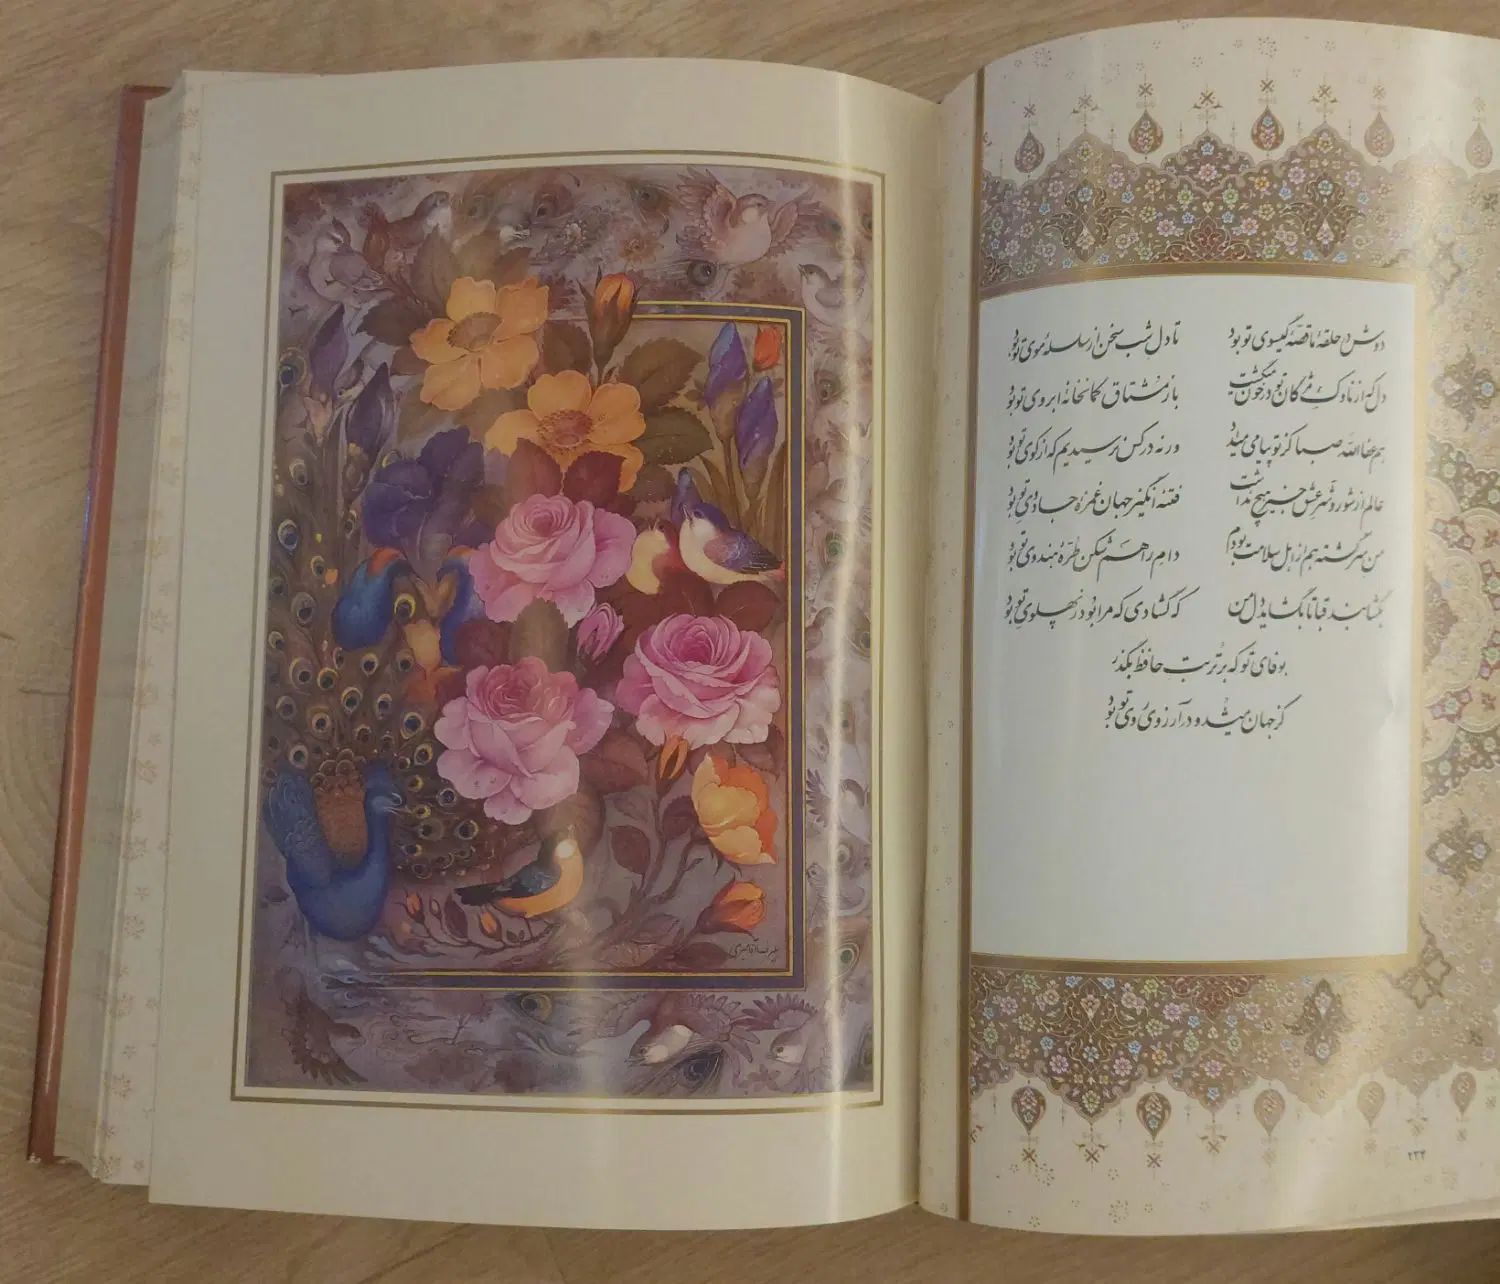 علیرضا آقامیری
دوش در حلقهٔ ما قصّهٔ گیسوی تو بود تا دل شب سخن از سلسلهٔ موی تو بود
دل که از ناوکِ مژگان تو در خون میگشت باز مشتاق کمانخانهٔ ابروی تو بود
هم عفاالله صبا کز تو پیامی میداد ورنه در کس نرسیدیم که از کوی تو بود
عالم از شور و شرِ عشق خبر هیچ نداشت فتنه انگیز جهان غمزهٔ جادوی تو بود
منِ سرگشته هم از اهل سلامت بودم دام راهم شکنِ طُرّهٔ هندوی تو بود
بگشا بند قبا تا بگشاید دل من که گشادی که مرا بود ز پهلوی تو بود
بوفای تو که بر تُربت حافظ بگذر
کز جهان میشد و در آرزوی روی تو بود
۲۳۴